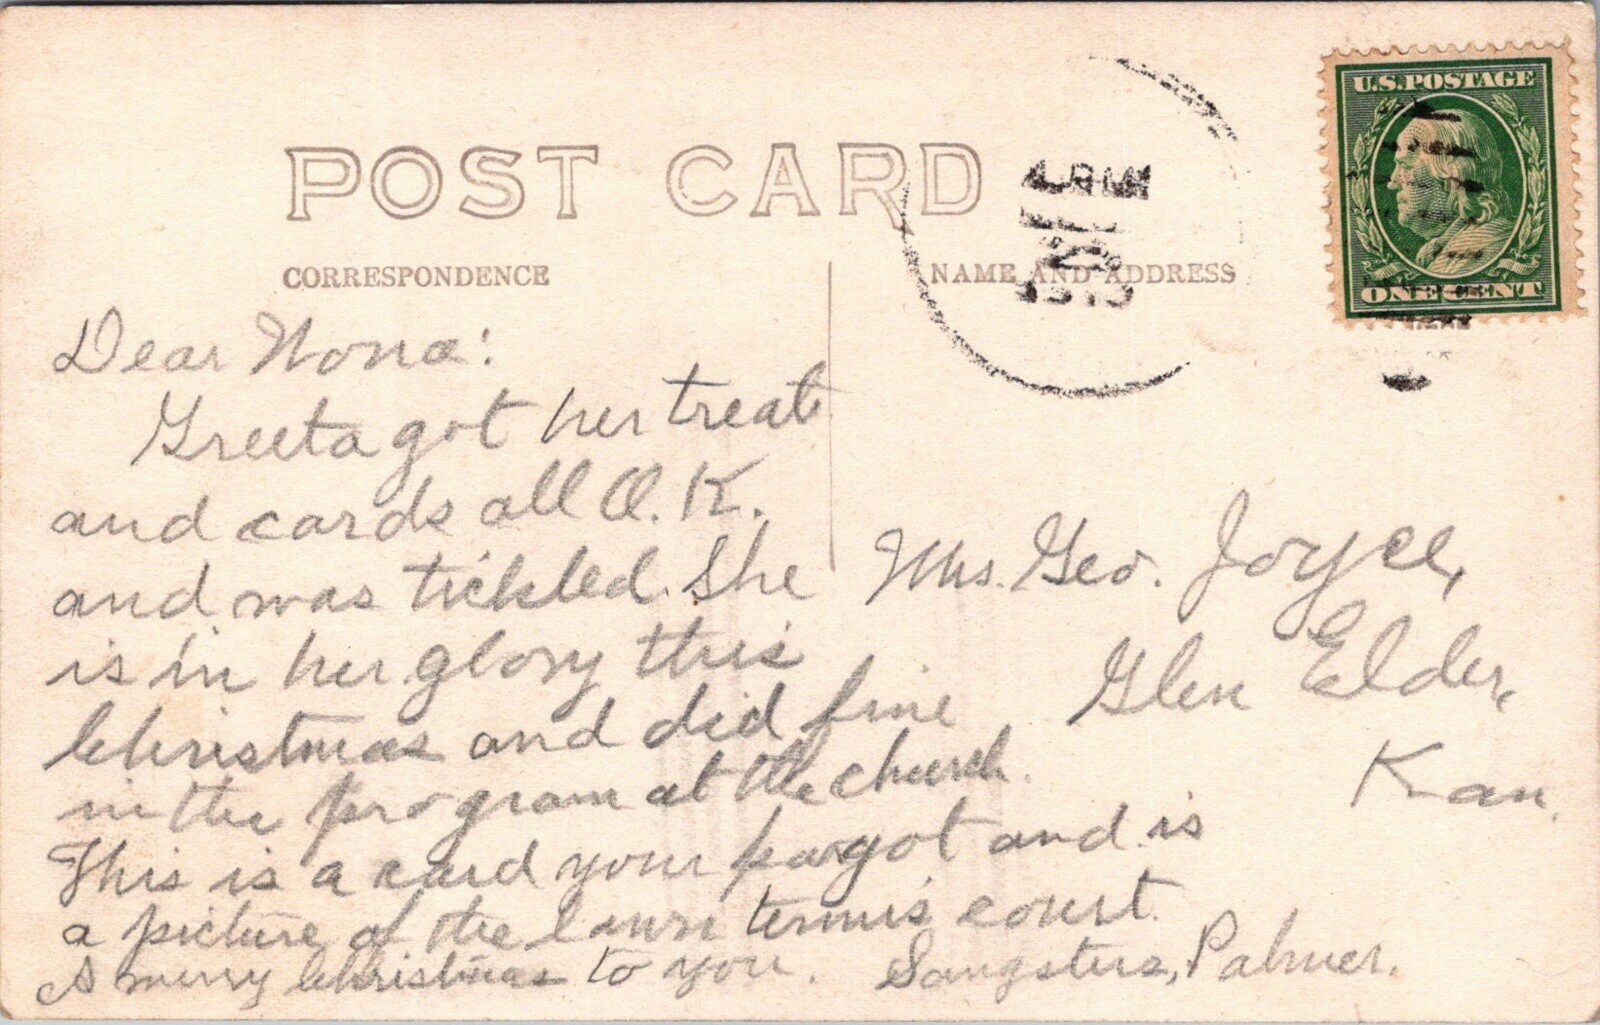 POST CARD
U.S. POSTAGE
ONE CENT
CORRESPONDENCE
NAME AND ADDRESS
Dear Nona:
Greeta got her treat
and cards all O.K.
and was tickled. She
is in her glory this
Christmas and did fine
in the program at the church.
This is a card your forgot and is
a picture of the lawn tennis court.
A merry Christmas to you. Sangsters, Palmer.
Mrs. Geo. Joyce,
Glen Elder,
Kan.